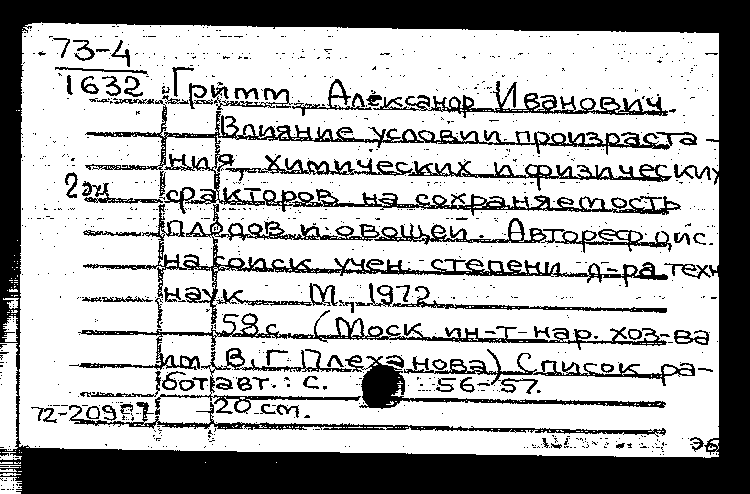 73-4
1632
Гримм, Александр Иванович.
Влияние условий произраста-
ния, химических и физических
2 эк
факторов на сохраняемость
плодов и овощей. Автореф дис.
на соиск учен степени д-ра техн
наук М., 1972.
58 с. (Моск ин-т нар. хоз-ва
им В. Г Плеханова) Список ра-
бот авт.: с. 56-57.
20 см.
72-20987